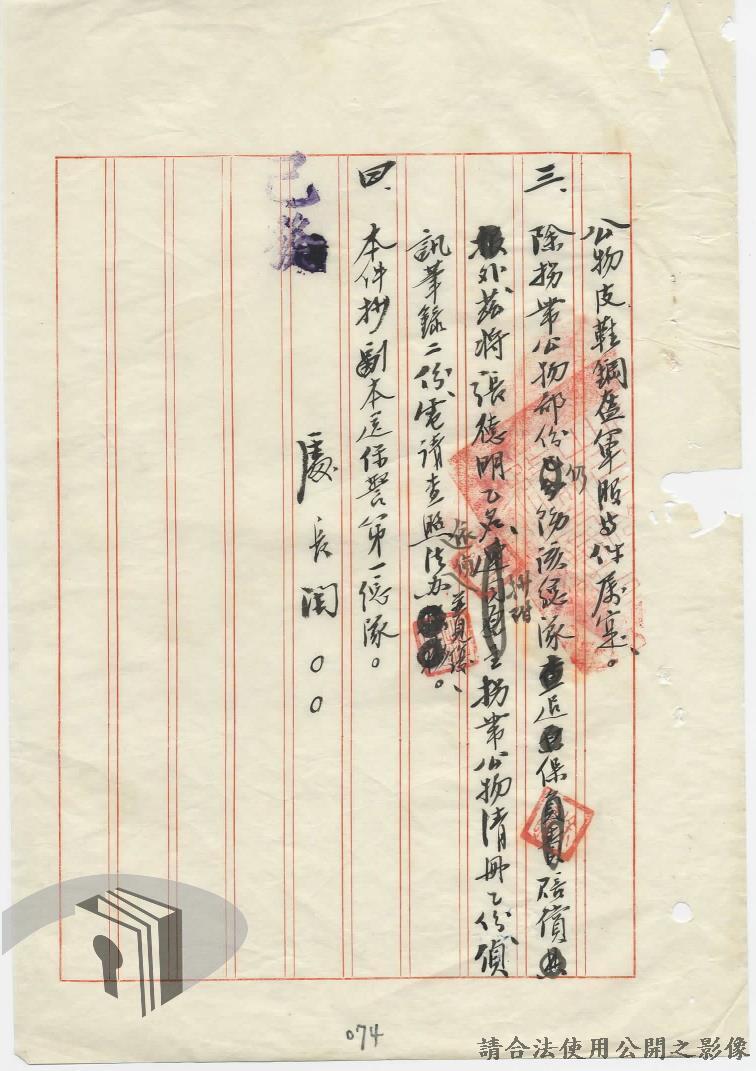 公物皮鞋鋼盔軍服等件屬寔。
三、除拐帶公物部份仍飭該總隊追保賠償
外茲將張德明乙名抄附拐帶公物清冊乙份偵
訊筆錄二份電請查照法办並見復。
依偵
四、本件抄副本送保警第一總隊。
處長閻○○
已發
074
請合法使用公開之影像